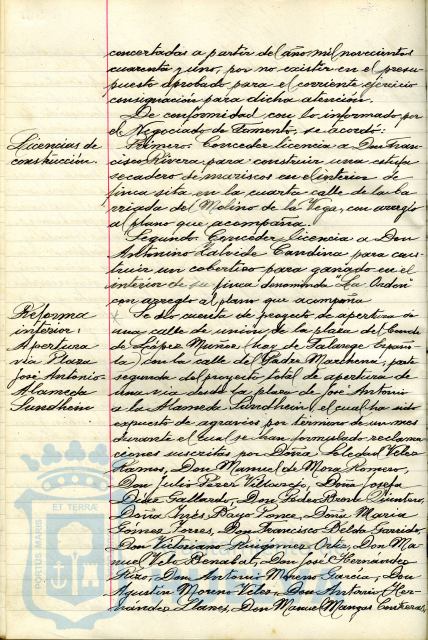 concertadas a partir del año mil novecientos
cuarenta y uno, por no existir en el presu-
puesto aprobado para el corriente ejercicio
consignación para dicha atención.
De conformidad con lo informado por
el Negociado de Fomento, se acordó:
Licencias de
construcción.
Primero: Conceder licencia a Don Fran-
cisco Rivera para construir una estufa
secadero de mariscos en el interior de
finca sita en la cuarta calle de la ba-
rriada del Molino de la Vega, con arreglo
al plano que acompaña.
Segundo: Conceder licencia a Don
Antonino Candina, para cons-
truir un cobertizo para ganado en el
interior de su finca denominda "La Orden"
con arreglo al plano que acompaña
Reforma
interior:
Apertura
vía Plaza
José Antonio-
Alameda
Sundheim
Se dio cuenta de proyecto de apertura de
una calle de unión de la plaza del Conde
de López Muñoz (hoy de Falange Españo-
la) con la calle del Padre Marchena, parte
segunda del proyecto total de apertura de
una vía desde la plaza de José Antonio
a la Alameda Sundheim, el cual ha sido
expuesto de agravios por término de un mes
durante el cual se han formulado reclama-
ciones suscritas por Doña Soledad Velez
Ramos, Don Manuel de Mora Romero,
Don Julio Perez, Doña Josefa
Diaz Gallardo, Don Pedro Bront Quintero,
Doña Inés Bayo Ponce, Doña Maria
Gómez Torres, Don Francisco Belda Garrido,
Don Victoriano Ortiz, Don Ma-
nuel Velo Benabat, Don José Hernández
Rizo, Don Antonio Moreno Garcia, Don
Agustin Moreno Velez, Don Antonio Her-
nandez Llanes, Don Manuel Mangas Contreras,
PORTUS MARIS
ET TERRAE